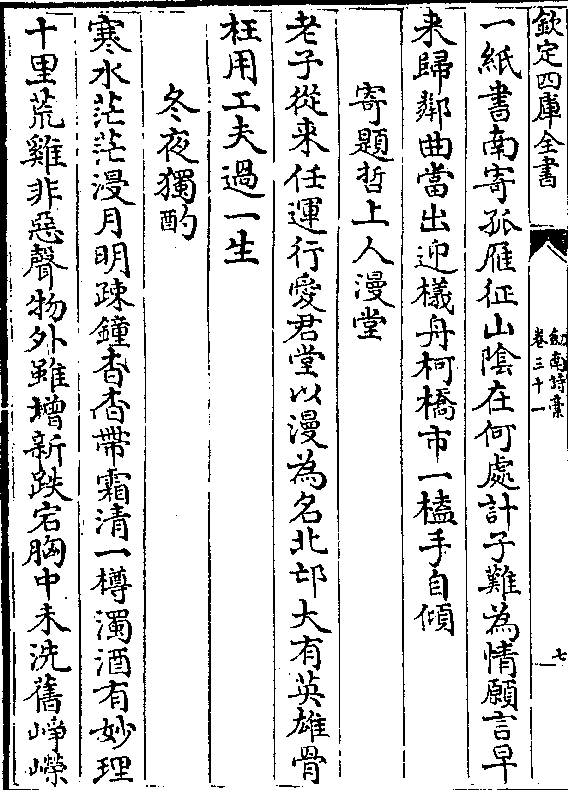 欽定四庫全書
劍南詩藁
卷三十一
七
一紙書南寄孤雁征山陰在何處計子難為情願言早
来歸鄰曲當出迎檥舟柯橋市一榼手自傾
寄題哲上人漫堂
老子從来任運行愛君堂以漫為名北邙大有英雄骨
枉用工夫過一生
冬夜獨酌
寒水茫茫漫月明疎鐘杳杳帶霜清一樽濁酒有妙理
十里荒雞非惡聲物外雖增新跌宕胸中未洗舊崢嶸